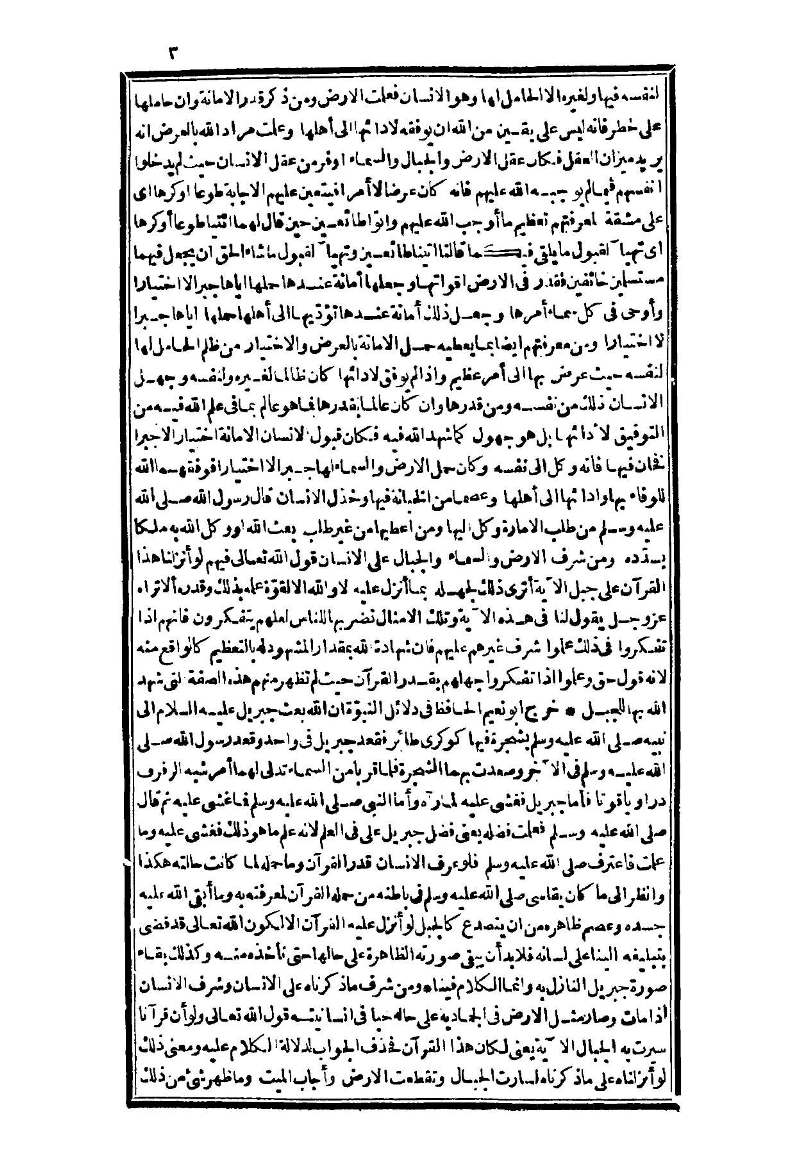 ٣
لنفسه فيها ولغيره الا الحامل لها وهو الانسان فعلمت الارض ومن ذكر قدر الامانة وان حاملها
على خطر فانه ليس على يقين من الله ان يوفقه لادائها الى أهلها وعلمت مراد الله بالعرض انه
يريد ميزان العقل فكان عقل الارض والجبال والسماء اوفر من عقل الانسان حيث لم يدخلوا
انفسهم فيما لم يوجبه الله عليهم فانه كان عرضا لا أمرا فيتعين عليهم الاجابة طوعا او كرها اى
على مشقة لمعرفتهم تعظيم ما أوجب الله عليهم واتوا طائعين حين قال لهما ائتيا طوعا أو كرها
اى تهيآ لقبول ما يلقى فيكما قالتا اتينا طائعين وتهيآ لقبول ما شاء الحق ان يجعل فيهما
مستسلمين خائفين فقدر فى الارض اقواتها وجعلها أمانة عندها حملها اياها جبرا لا اختيارا
وأوحى فى كل سماء أمرها وجعل ذلك أمانة عندها تؤديها الى أهلها حملها اياها جبرا
لا اختيارا ومن معرفتهم ايضا بما يعطيه حمل الامانة بالعرض والاختيار من ظلم الحامل لها
لنفسه حيث عرض بها الى أمر عظيم واذا لم يوفق لادائها كان ظالما لغيره ولنفسه وجهل
الانسان ذلك من نفسه ومن قدرها وان كان عالما بقدرها فما هو عالم بما فى علم الله فيه من
التوفيق لادائها بل هو جهول كما شهد الله فيه فكان قبول الانسان الامانة اختيارا لا جبرا
فخان فيها فانه وكل الى نفسه وكان حمل الارض والسماء لها جبرا لا اختيارا فوفقهما الله
للوفاء بها وادائها الى أهلها وعصما من الخيانة فيها وخذل الانسان قال رسول الله صلى الله
عليه وسلم من طلب الامارة وكل اليها ومن اعطيها من غير طلب بعث الله او وكل الله به ملكا
يسدده ومن شرف الارض والسماء والجبال على الانسان قول الله تعالى فيهم لو أنزلنا هذا
القرآن على جبل الآية أترى ذلك لجهله بما أنزل عليه لا والله الا لقوة علمه بذلك وقدره ألا تراه
عز وجل يقول لنا فى هذه الآية وتلك الامثال نضربها للناس لعلهم يتفكرون فانهم اذا
تفكروا فى ذلك علموا شرف غيرهم عليهم فان شهادة لله بمقدار المشهود له بالتعظيم كالواقع منه
لانه قول حق وعلموا اذا تفكروا جهلهم بقدر القرآن حيث لم تظهر منهم هذه الصفة لتى شهد
الله بها للجبل * خرج ابو نعيم الحافظ فى دلائل النبوة ان الله بعث جبريل عليه السلام الى
نبيه صلى الله عليه وسلم بشجرة فيها كوكرى طائر فقعد جبريل فى واحد وقعد رسول الله صلى
الله عليه وسلم فى الآخر وصعدت بهما الشجرة فلما قربا من السماء تدلى لهما أمر شبه الرفرف
درا وياقوتا فأما جبريل فغشى عليه لما رآه وأما النبى صلى الله عليه وسلم فما غشى عليه ثم قال
صلى الله عليه وسلم فعلمت فضله يعنى فضل جبريل على فى العلم لانه علم ما هو ذلك فغشى عليه وما
علمت فاعترف صلى الله عليه وسلم فلو عرف الانسان قدر القرآن وما حمله لما كانت حالته هكذا
وانظر الى ما كان يقاسى صلى الله عليه وسلم فى باطنه من حمله القرآن لمعرفته به وما أبقى الله عليه
جسده وعصم ظاهره من ان يتصدع كالجبل لو أنزل عليه القرآن الا لكون الله تعالى قد قضى
بتبليغه الينا على لسانه فلا بد أن يبقى صورته الظاهرة على حالها حتى نأخذه منه وكذلك بقاء
صورة جبريل النازل به وانما الكلام فيناه ومن شرف ما ذكرناه على الانسان وشرف الانسان
اذا مات وصار مثل الارض فى الجمادية على حاله حيا فى انسانيته قول الله تعالى ولو أن قرآنا
سيرت به الجبال الآية يعنى لكان هذا القرآن فحذف الجواب لدلالة الكلام عليه ومعنى ذلك
لو أنزلناه على ما ذكرناه لسارت الجبال وتقطعت الارض وأجاب الميت وما ظهر شئ من ذلك